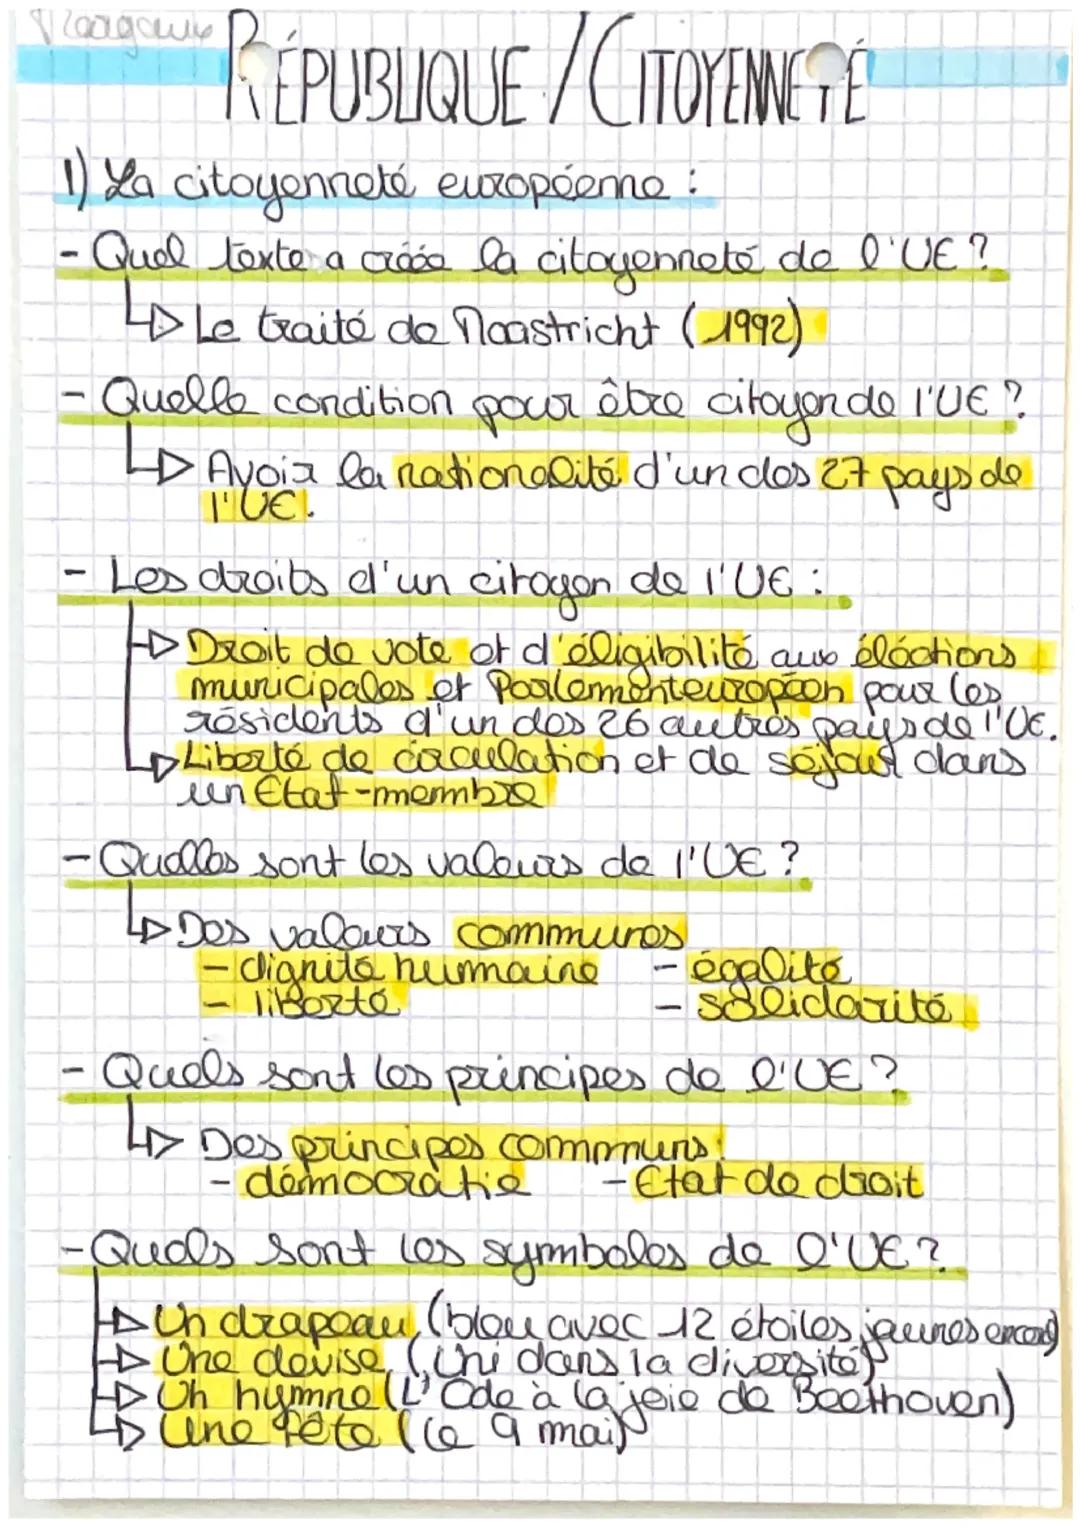 RÉPUBLIQUE / CITOYENNETÉ
1) La citoyenneté européenne :
- Quel texte a créée la citoyenneté de l'UE ?
Le traité de Maastricht (1992)
- Quelle condition pour être citoyen de l'UE ?
Avoir la nationalité d'un des 27 pays de
l'UE.
- Les droits d'un citoyen de l'UE :
Droit de vote et d'éligibilité aux éléctions
municipales et Parlement européen pour les
résidents d'un des 26 autres pays de l'UE.
Liberté de circulation et de séjour dans
un Etat-membre
- Quelles sont les valeurs de l'UE ?
Des valeurs communes
- dignité humaine - égalité
- liberté - solidarité
- Quels sont les principes de l'UE ?
Des principes communs :
- démocratie - Etat de droit
- Quels sont les symboles de l'UE ?
Un drapeau (bleu avec 12 étoiles jaunes
Une devise (Uni dans la diversité)
Un hymne (L'Ode à la joie de Beethoven)
Une fête (le 9 mai)